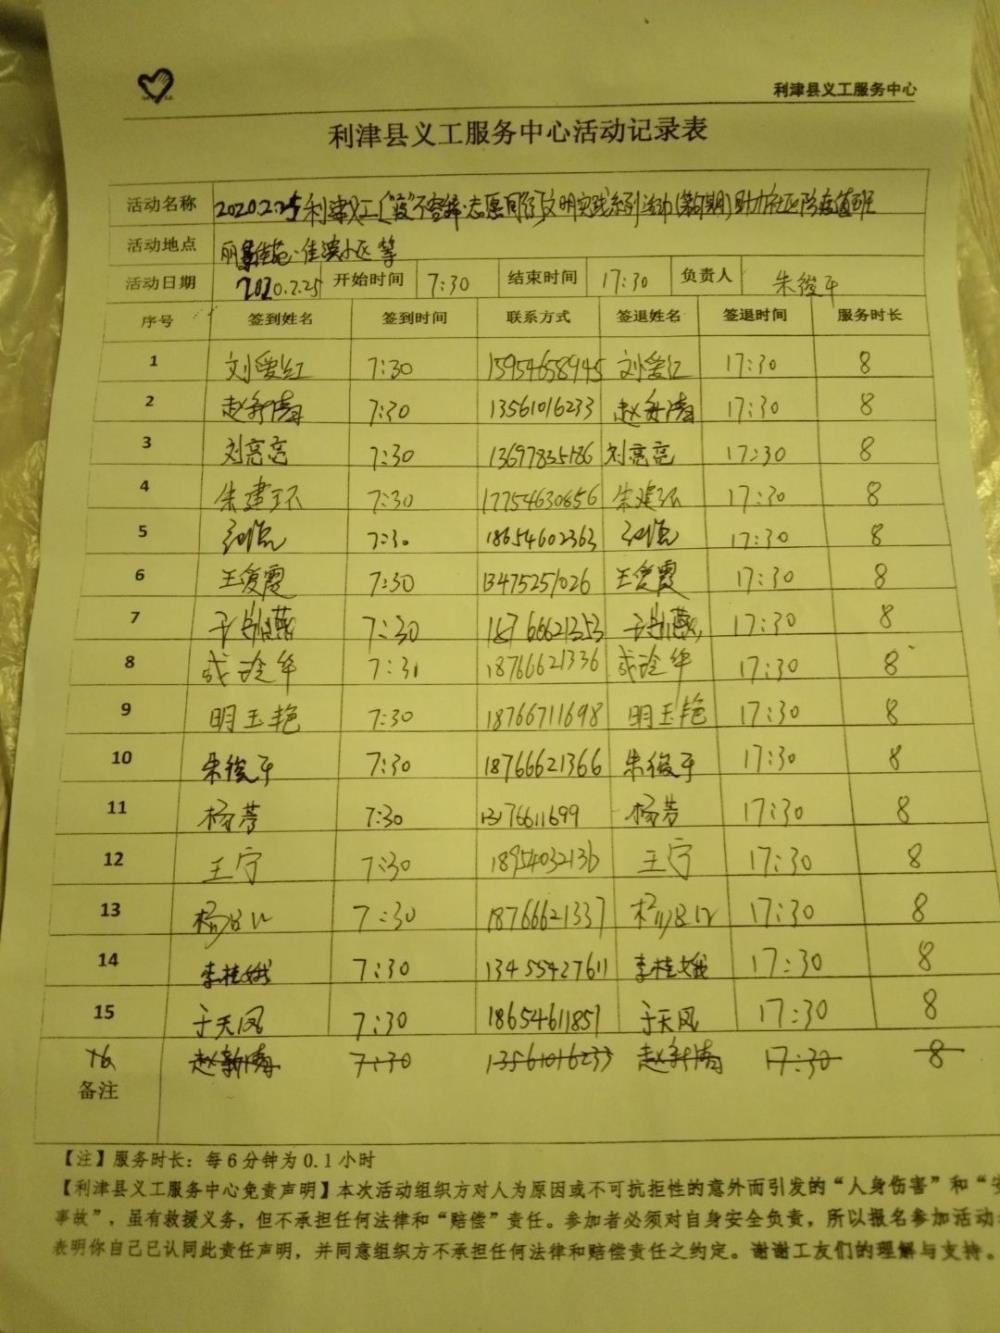 利津县义工服务中心
利津县义工服务中心活动记录表
活动名称 2020.2.25利津义工"疫"不容辞·志愿同行文明实践系列活动助力社区防疫值班
活动地点 丽景佳苑·佳滨小区等
活动日期 2020.2.25 开始时间 7:30 结束时间 17:30 负责人 朱俊平
序号 签到姓名 签到时间 联系方式 签退姓名 签退时间 服务时长
1 刘爱红 7:30 15954658945 刘爱红 17:30 8
2 赵新清 7:30 13561016233 赵新清 17:30 8
3 刘亮亮 7:30 13697835186 刘亮亮 17:30 8
4 朱建环 7:30 17754630656 朱建环 17:30 8
5 7:30 18654602363 17:30 8
6 王俊霞 7:30 13475251026 王俊霞 17:30 8
7 7:30 18766621353 17:30 8
8 7:31 18766621336 17:30 8
9 明玉艳 7:30 18766711698 明玉艳 17:30 8
10 朱俊平 7:30 18766621366 朱俊平 17:30 8
11 杨芳 7:30 13176611699 杨芳 17:30 8
12 王宁 7:30 18954032136 王宁 17:30 8
13 7:30 18766621337 17:30 8
14 李桂娥 7:30 13455427611 李桂娥 17:30 8
15 于天凤 7:30 18654611857 于天凤 17:30 8
16 赵新清 7:30 13561016233 赵新清 17:30 8
备注
【注】服务时长：每6分钟为0.1小时
【利津县义工服务中心免责声明】本次活动组织方对人为原因或不可抗拒性的意外而引发的“人身伤害”和“安
事故”，虽有救援义务，但不承担任何法律和“赔偿”责任。参加者必须对自身安全负责，所以报名参加活动
表明你自己已认同此责任声明，并同意组织方不承担任何法律和赔偿责任之约定。谢谢工友们的理解与支持。